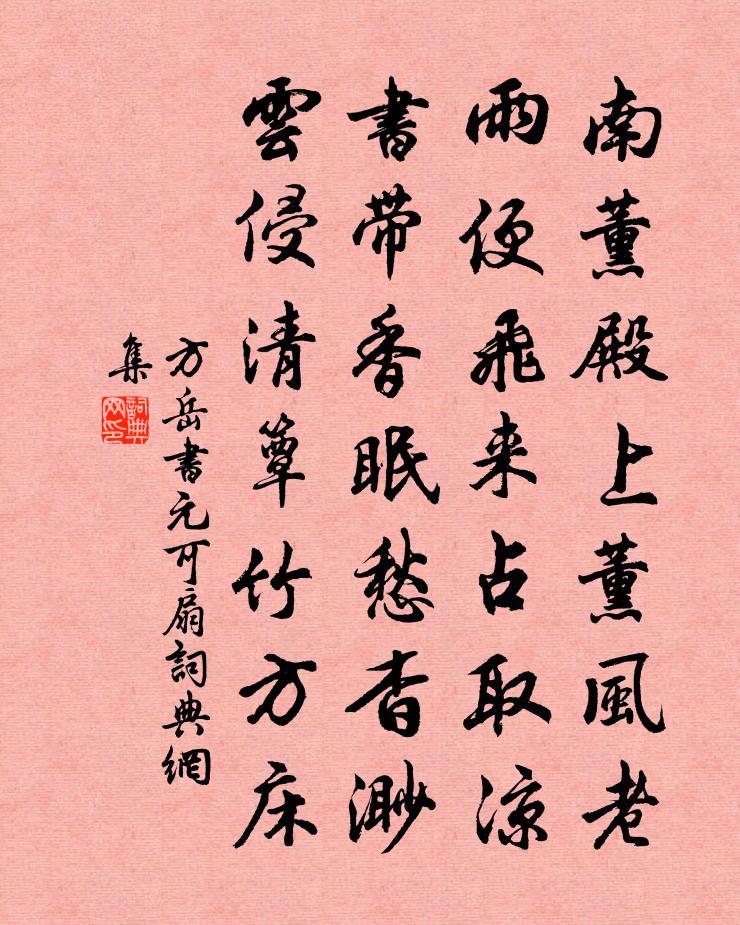 南薰殿上薰風老
雨便飛来占取凉
書帶香眠愁杳渺
雲侵清簟竹方床
方岳書元可扇詞典網
集
詞典网印